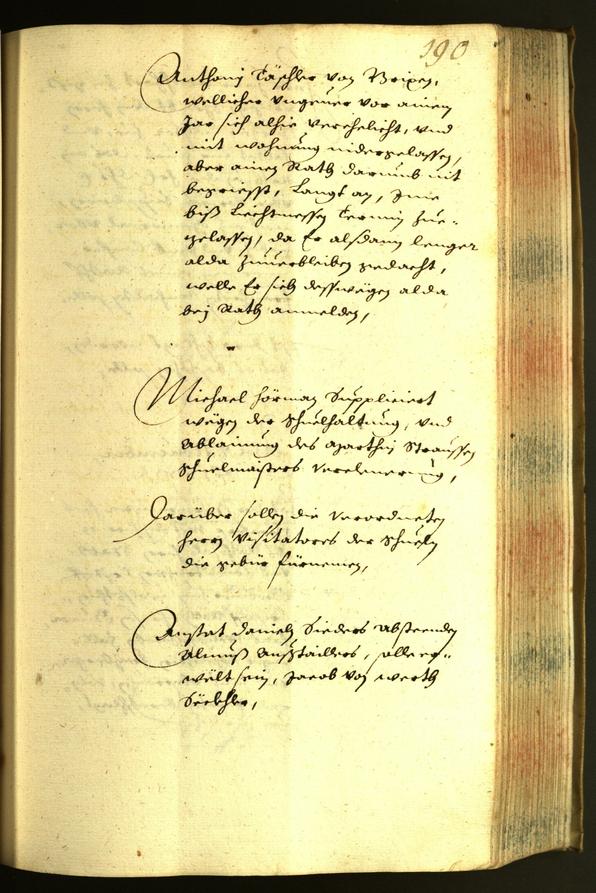 190
Anthonj Täschler von Brixen,
wellicher ungeuer vor ainem
Jar sich alhie verehelicht, und
mit wohnung nidergelassen,
aber ainen Rath darumb nit
begriesst, Langt an, Jme
biß Liechtmessen Termin zue-
gelassen, da Er alsdann lenger
alda zuuerbleiben gedacht,
welle Er sich desswegen alda
bej Rath anmelden,
Michael Hörman Suppliciert
wegen der Schuelhaltung, und
Ablainung des Marthin Straussen
Schuelmaisters
Darüber sollen die Verordneten
herrn Visitatores der Schueln
die gebür fürnemen,
Anstat Danieln Sieders absteenden
Almueß Außtaillers, solle er-
wölt sein, Jacob von Werth